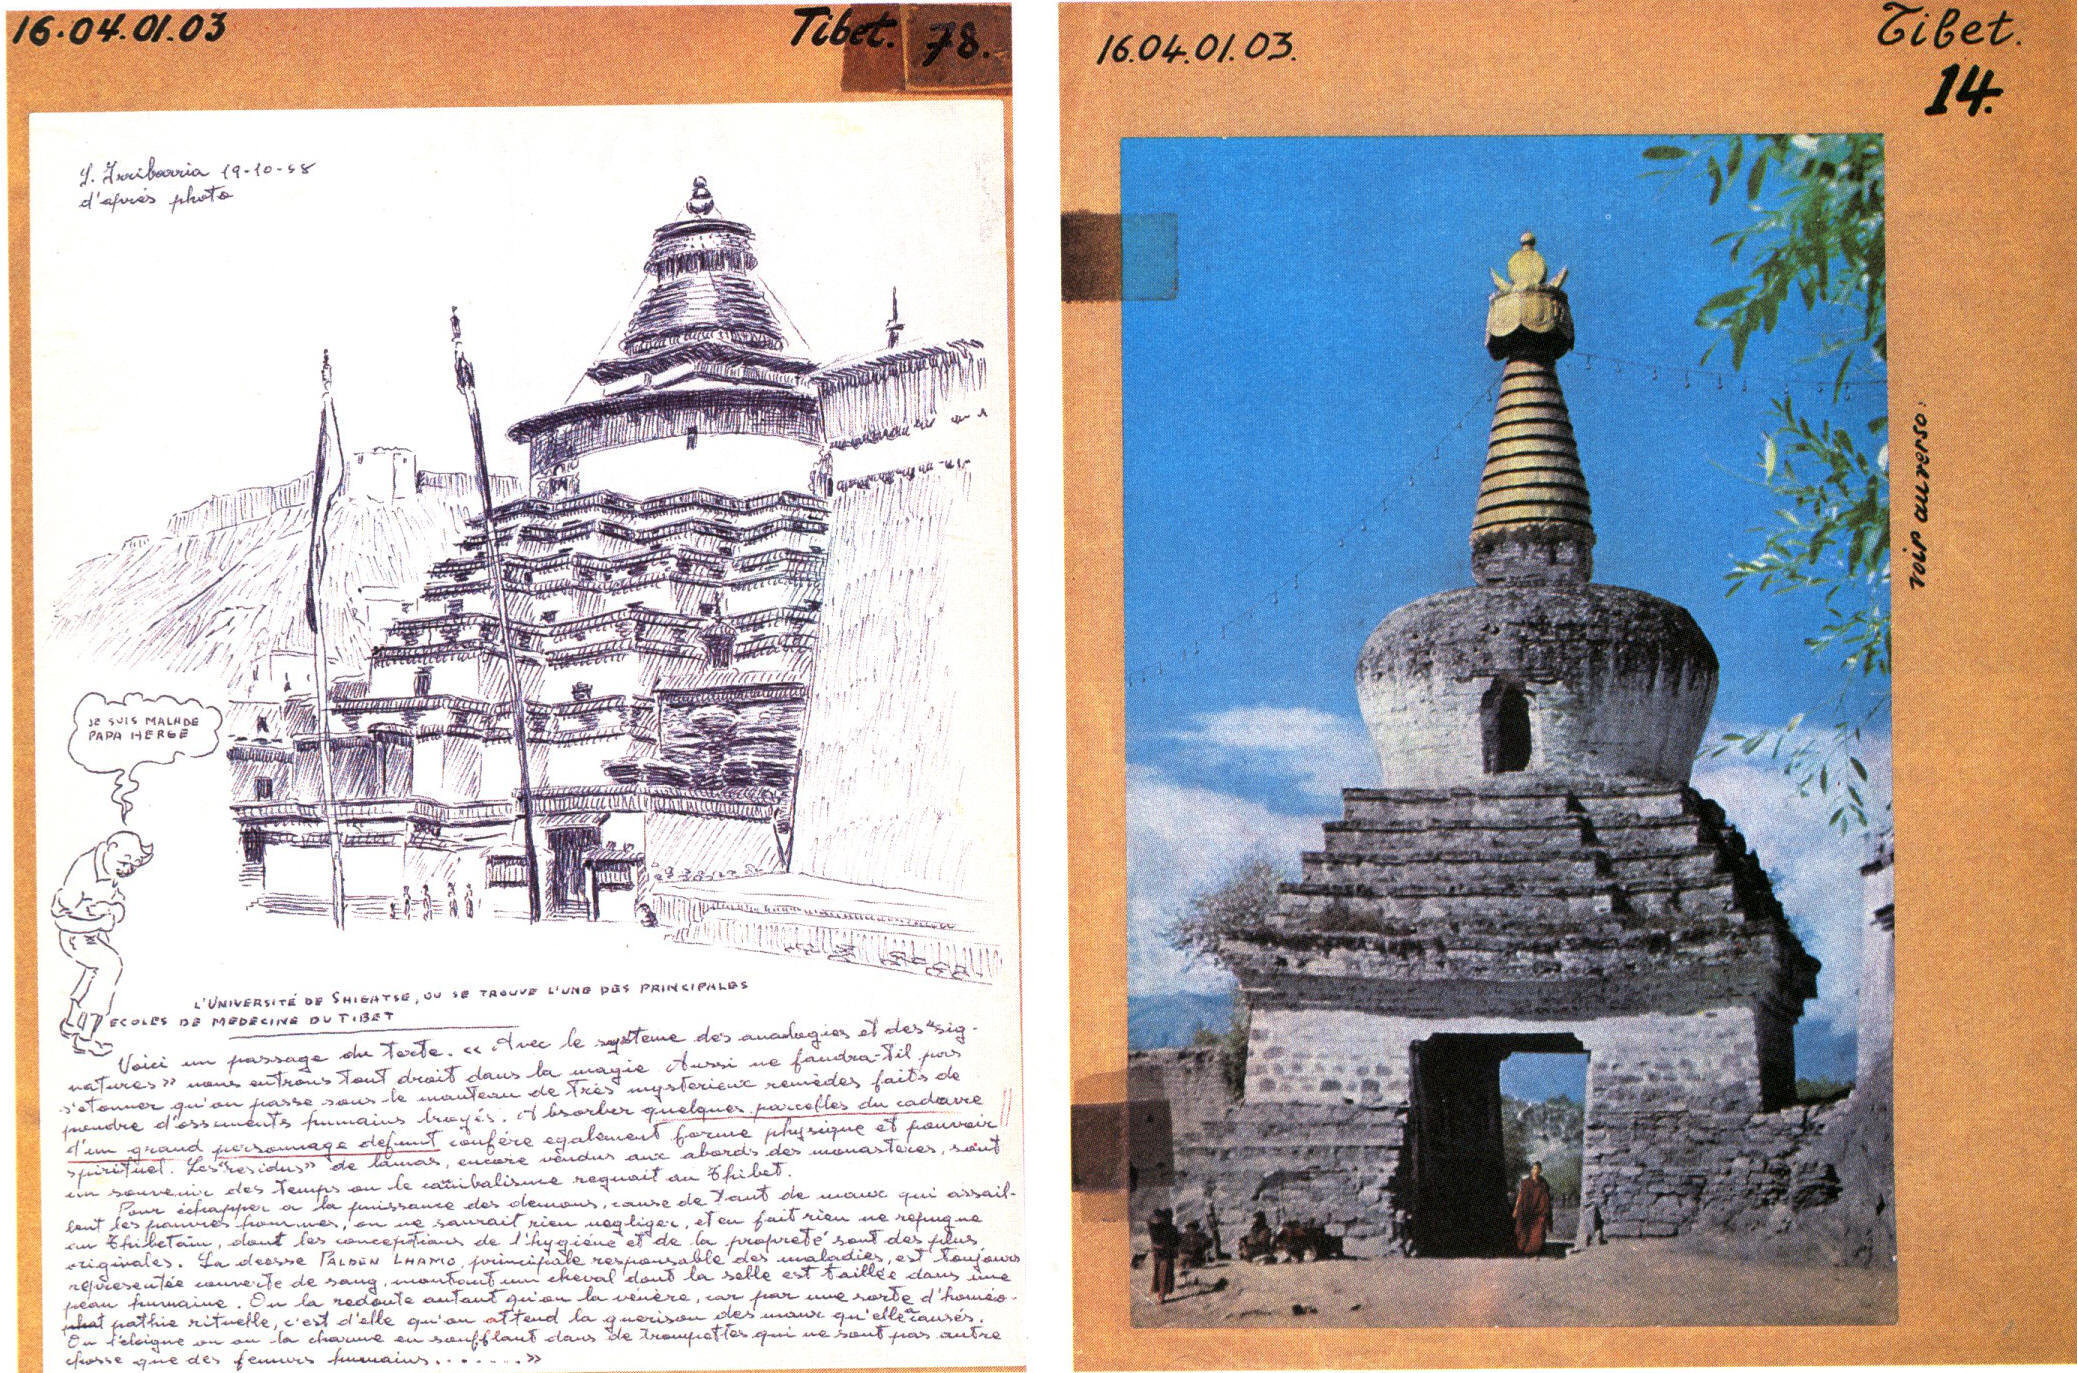 16.04.01.03
Tibet. 78.
J. Irribarria 19-10-58
d'après photo
JE SUIS MALADE
PAPA HERGE
L'UNIVERSITÉ DE SHIGATSE, OU SE TROUVE L'UNE DES PRINCIPALES
ECOLES DE MEDECINE DU TIBET
Voici un passage du texte. << Avec le système des analogies et des "sig-
natures" >> nous entrons tout droit dans la magie. Aussi ne faudra-til pas
s'etonner qu'on passe sous le manteau de très mysterieux remèdes faits de
poudre d'ossements humains broyés. Absorber quelques parcelles du cadavre
d'un grand personnage defunt confére egalement forme physique et pouvoir
spirituel. Les "residus" de lamas, encore vendus aux abords des monastères, sont
un souvenir des temps ou le canibalisme regnait au Thibet.
Pour échapper a la puissance des demons, cause de tant de maux qui assail-
lent les pauvres hommes, on ne saurait rien negliger, et en fait rien ne repugne
au Thibetain, dont les conceptions de l'hygiéne et de la propreté sont des plus
originales. La deesse PALDEN LHAMO, principale responsable des maladies, est toujours
représentée couverte de sang, montant un cheval dont la selle est taillée dans une
peau humaine. On la redoute autant qu'on la vénère, car par une sorte d'homéo-
pathie rituelle, c'est d'elle qu'on attend la guerison des maux qu'elle a causés.
On l'éloigne ou on la charme en soufflant dans de trompettes qui ne sont pas autre
chosse que des femurs humains. . . . . . . . >>
16.04.01.03.
Tibet.
14.
voir au verso: